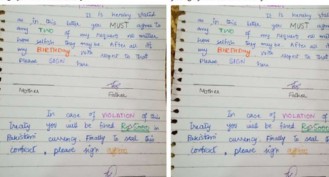 It is hereby stated
as in this letter you MUST agree to
any TWO of my request no matter
how selfish they may be. After all it's
my BIRTHDAY
Please SIGN here
Mother
Father
In case of VIOLATION of this
treaty you will be fined
Pakistani currency. Finally to seal this
contract, please sign
It is hereby stated
as in this letter you MUST agree to
any TWO of my request no matter
how selfish they may be. After all it's
my BIRTHDAY
Please SIGN here
Mother
Father
In case of VIOLATION of this
treaty you will be fined
Pakistani currency. Finally to seal this
contract, please sign